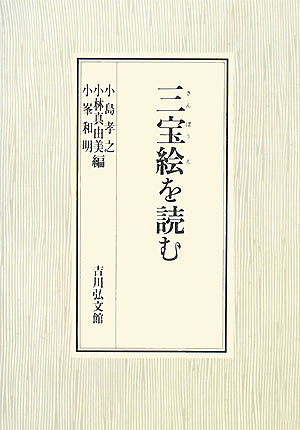 三宝絵を読む
さんぼうえ
小島孝之
小林真由美編
小峯和明
吉川弘文館